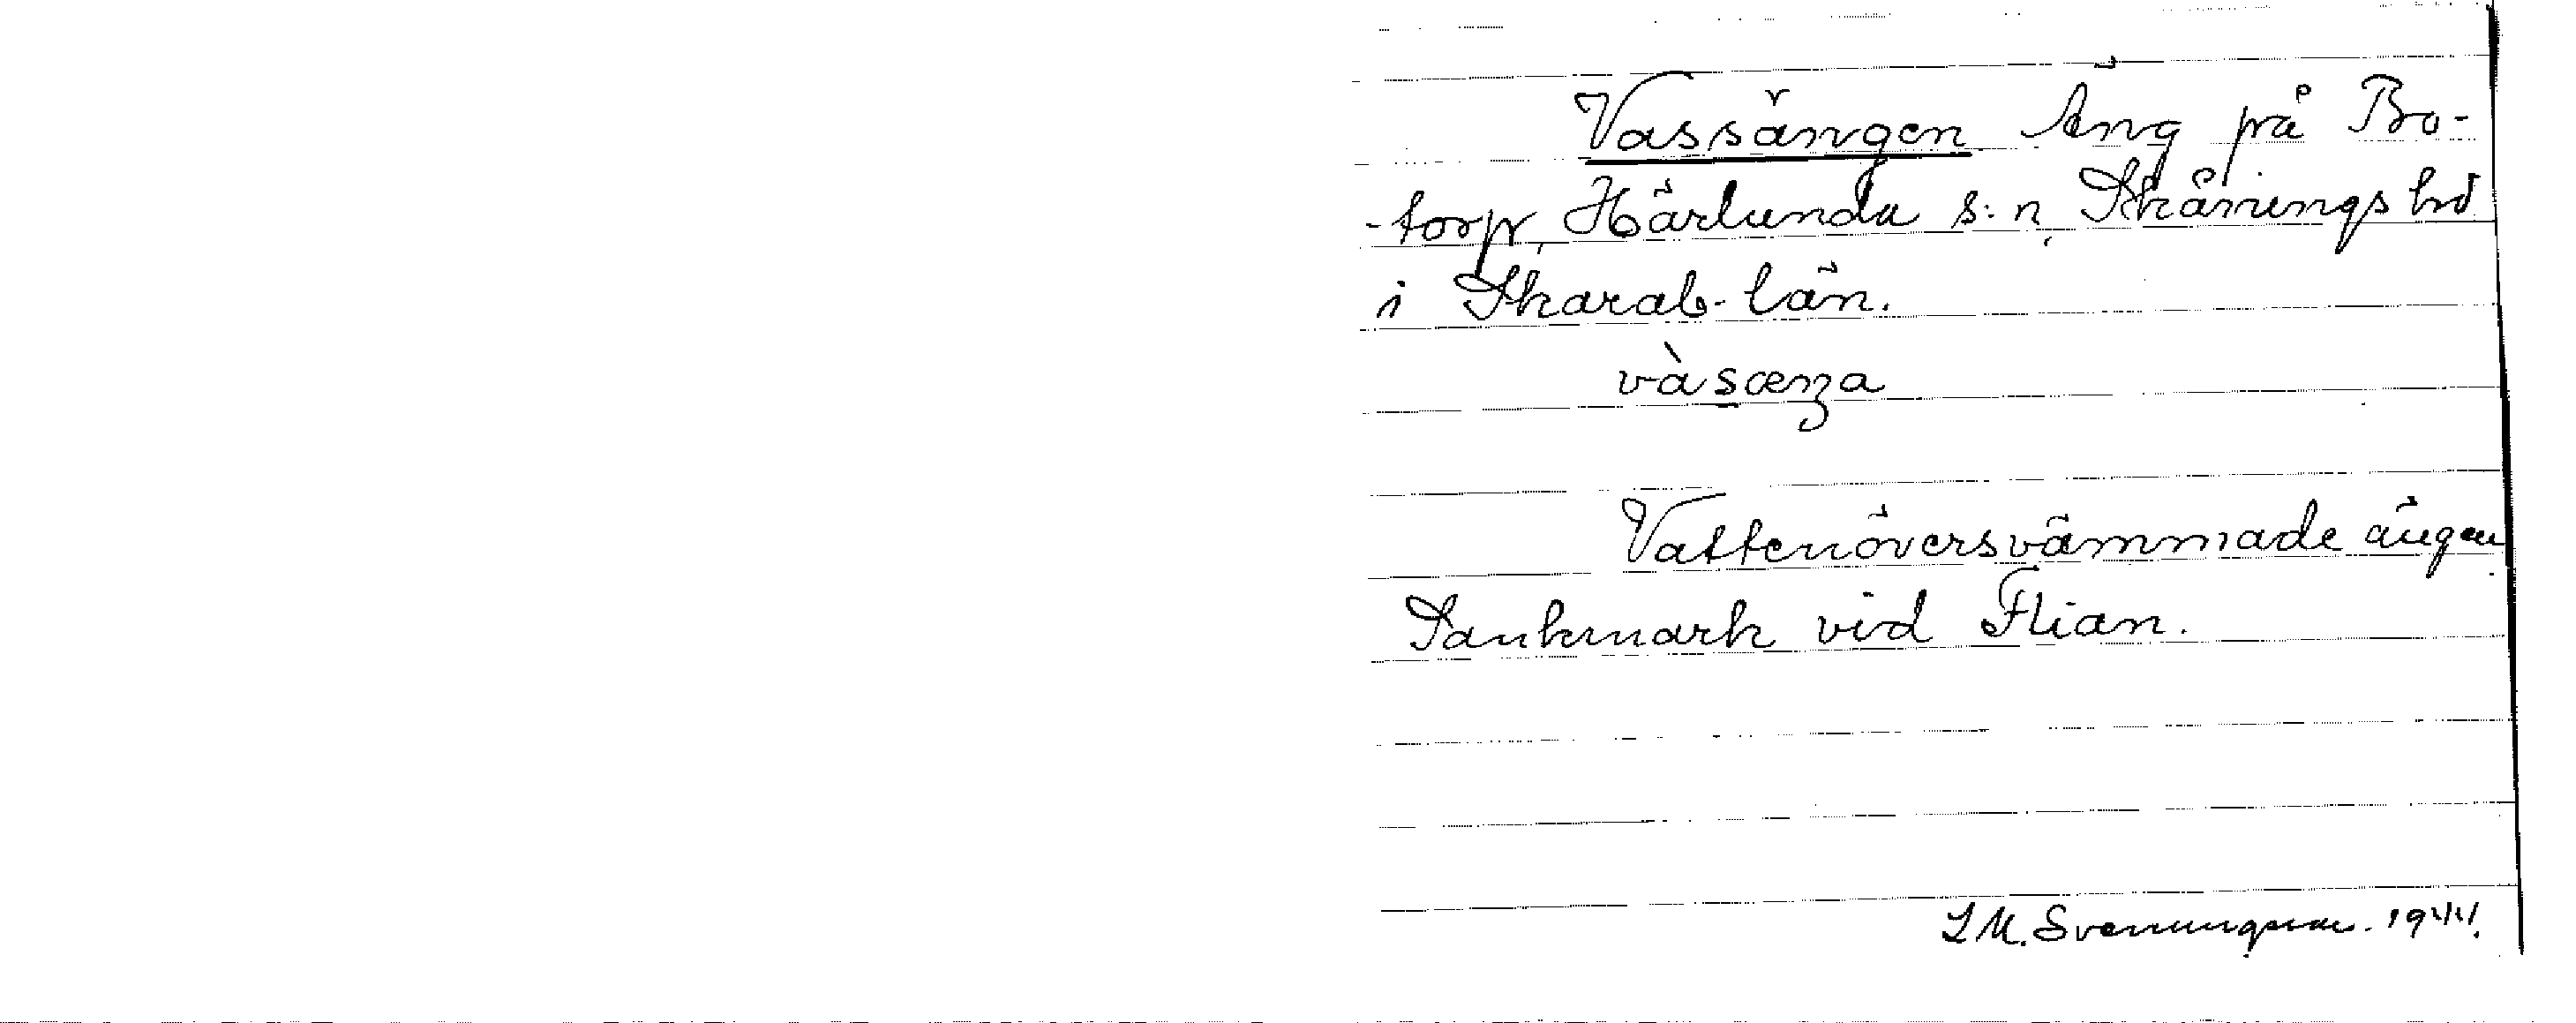 Vassängen Äng på Bo-
-torp, Härlunda s:n, Skånings hd
i Skarab-län.
vàsæŋa
Vattenöversvämmade ängen
Sankmark vid Flian.
L M. Svenungsson. 1944.